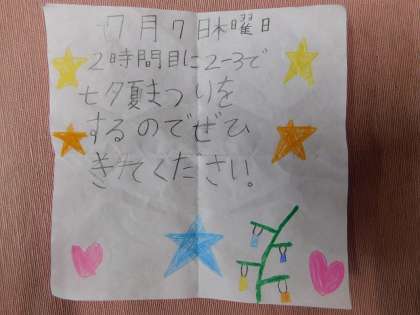 7月7日木曜日
2時間目に2-3で
七夕夏まつりを
するのでぜひ
きてください。